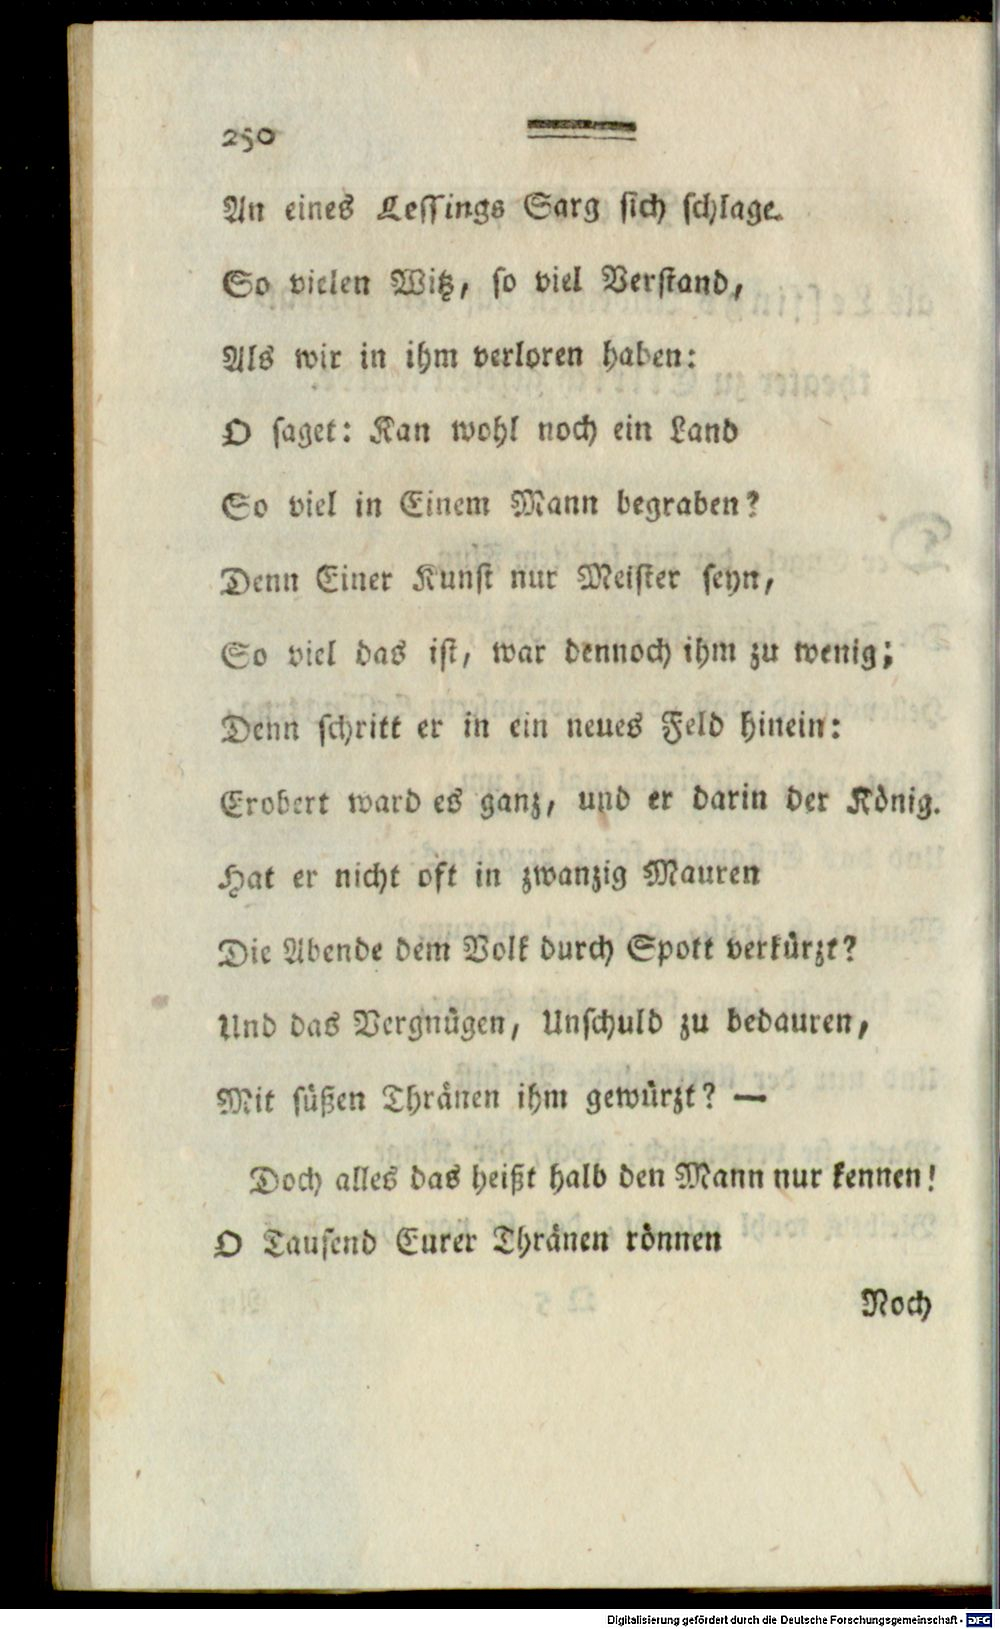 250
An eines Lessings Sarg sich schlage.
So vielen Witz, so viel Verstand,
Als wir in ihm verloren haben:
O saget: Kan wohl noch ein Land
So viel in Einem Mann begraben?
Denn Einer Kunst nur Meister seyn,
So viel das ist, war dennoch ihm zu wenig;
Denn schritt er in ein neues Feld hinein:
Erobert ward es ganz, und er darin der König.
Hat er nicht oft in zwanzig Mauren
Die Abende dem Volk durch Spott verkürzt?
Und das Vergnügen, Unschuld zu bedauren,
Mit süßen Thränen ihm gewürzt? —
Doch alles das heißt halb den Mann nur kennen!
O Tausend Eurer Thränen rönnen
Noch
Digitalisierung gefördert durch die Deutsche Forschungsgemeinschaft - DFG